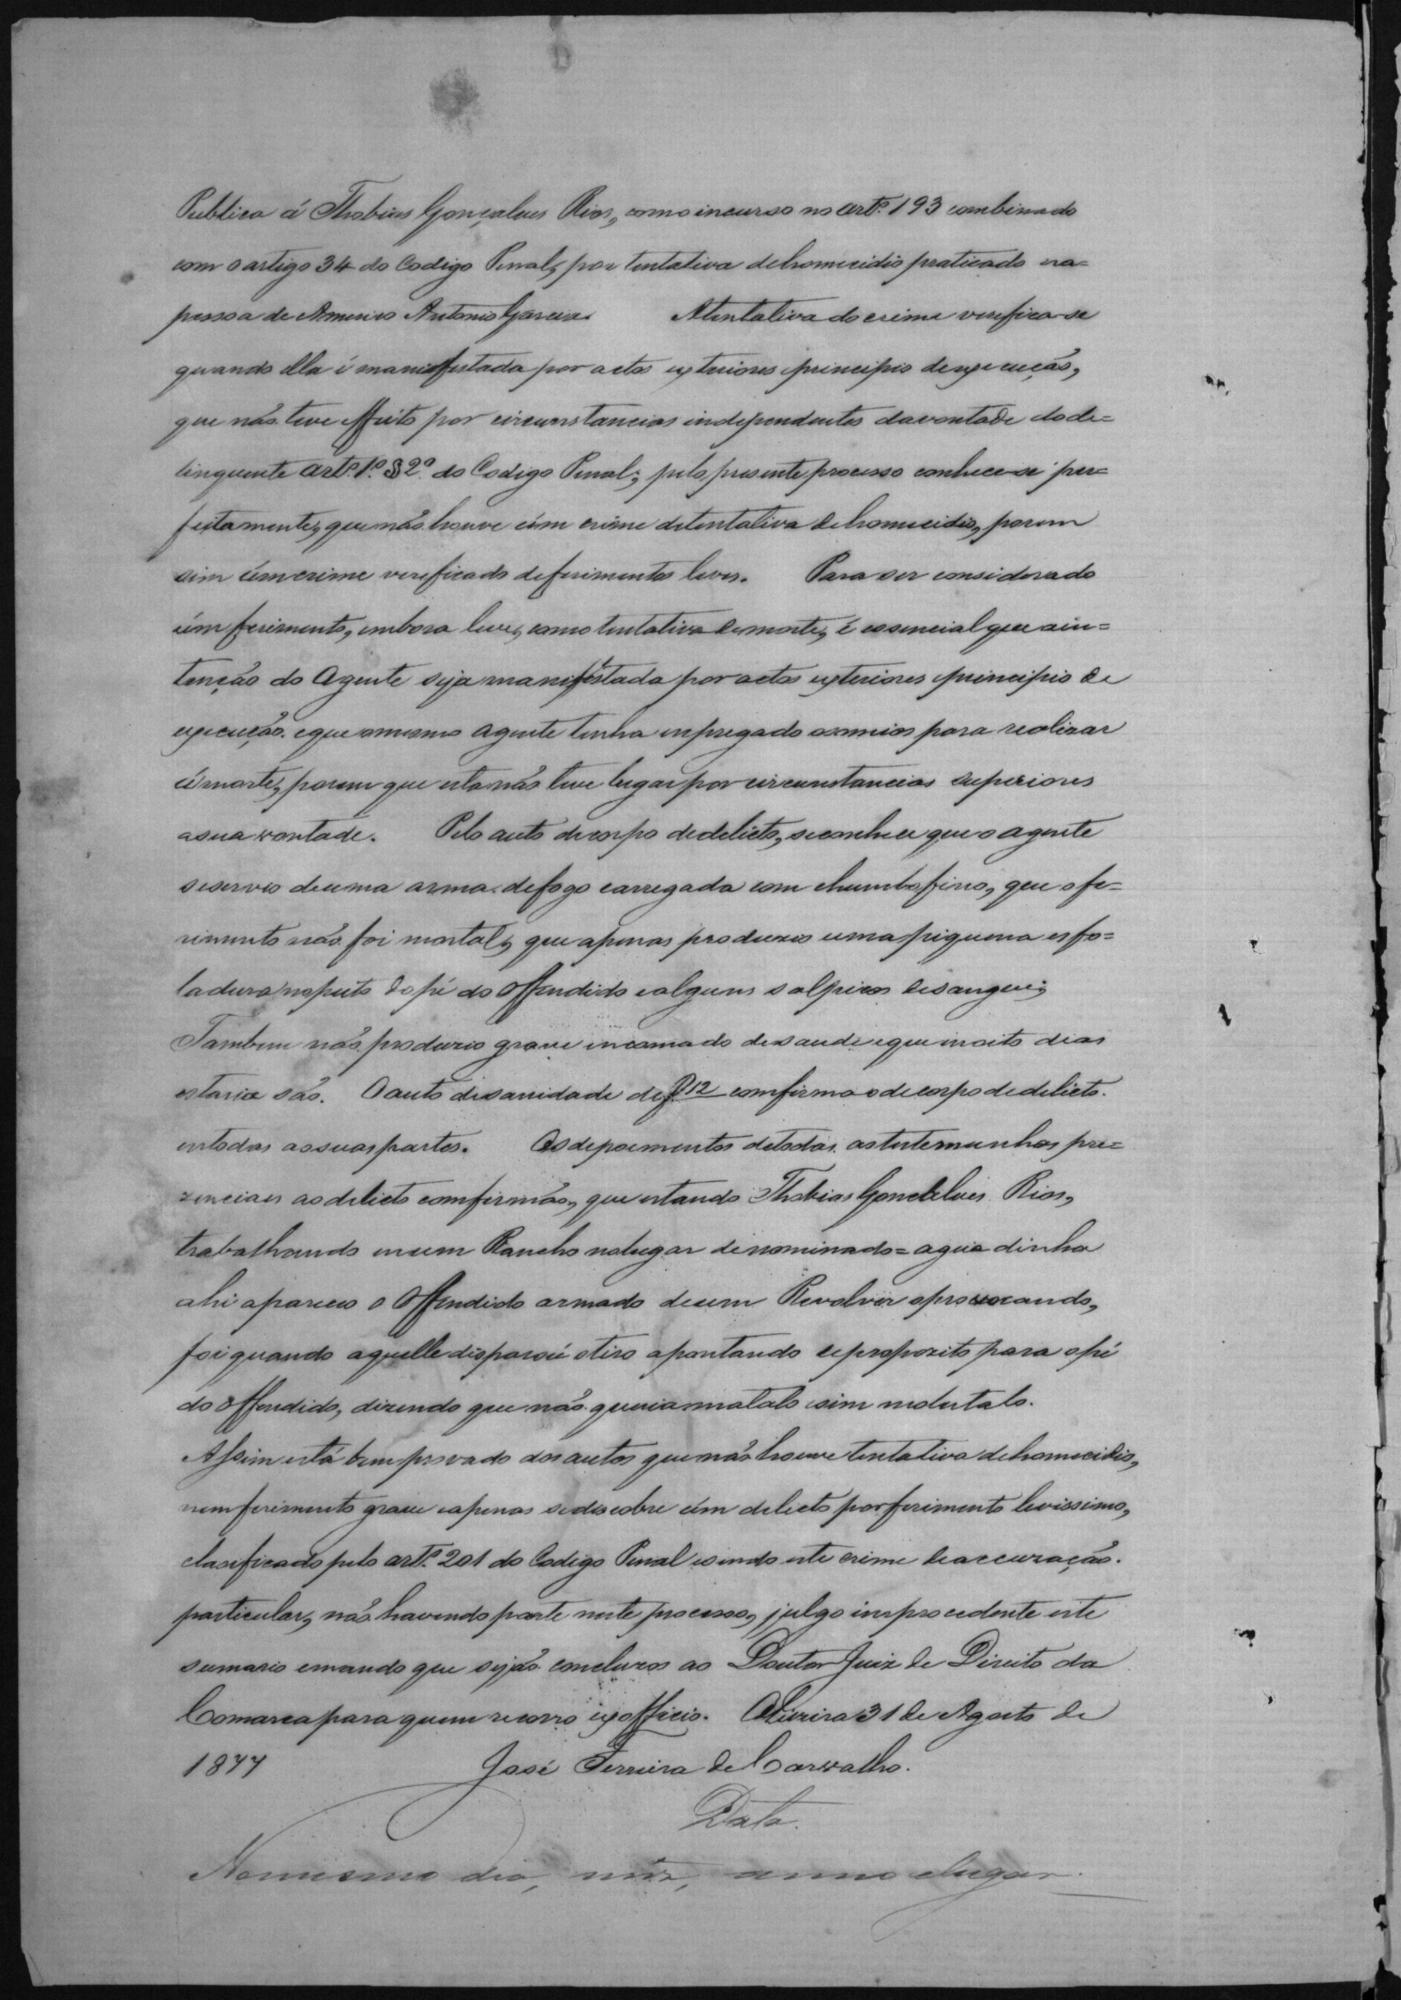 Publica á Thobias Gonçalues Rios, como incurso no artº 193 combinado
com o artigo 34 do Codigo Penal, por tentativa de homicidio praticado na=
pessoa de Americo Antonio Garcia. A tentativa do crime verifica-se
quando ella é manifestada por actos exteriores e principio de execução,
que não teve effeito por circunstancias independentes da vontade do de=
linquente artº 1º § 2º do Codigo Penal; pelo presente processo conhece-se per=
feitamente, que não houve úm crime de tentativa de homicidio, porem
sim úm crime verificado de ferimentos leves. Para ser considerado
úm ferimento, embora leve, como tentativa de morte, é essencial que a in=
tenção do Agente seja manifestada por actos exteriores e principio de
execução e que o mesmo agente tenha empregado os meios para realizar
á morte, porem que esta não teve lugar por circunstancias superiores
a sua vontade. Pelo auto de corpo de delicto, se conhece que o agente
se servio de uma arma de fogo carregada com chumbo fino, que o fe=
rimento não foi mortal, que apenas produzio uma piquena esfo=
ladura no peito do pé do offendido e alguns salpicos de sangue;
Tambem não produzio grave incomado de saude e que in oito dias
estaria são. O auto de sanidade de f 12 comfirma o de corpo de delicto.
em todas as suas partes. Os depoimentos de todas as testemunhas pre=
zenciaes ao delicto comfirmão, que estando Thobias Goncalves Rios,
trabalhando em um Rancho no lugar denominado = agua dinha
ahi apareceo o offendido armado de um Revolver e provocando,
foi quando aquelle disparou o tiro apontando de proposito para o pé
do offendido, dizendo que não queria matalo e sim molestalo.
Assim está bem provado dos autos que não houve tentativa de homicidio,
nem ferimento grave e apenas se discobre úm delicto por ferimento levissimo,
clasificado pelo artº 201 do Codigo Penal e sendo este crime de accuzação
particular, não havendo parte neste processo, julgo improcedente este
sumario e mando que sejão concluzos ao Doutor Juiz de Direito da
Comarca para quem recorro ex officio. Oliveira 31 de Agosto de
1877 José Ferreira de Carvalho.
Data.
No mesmo dia, mez, anno e lugar